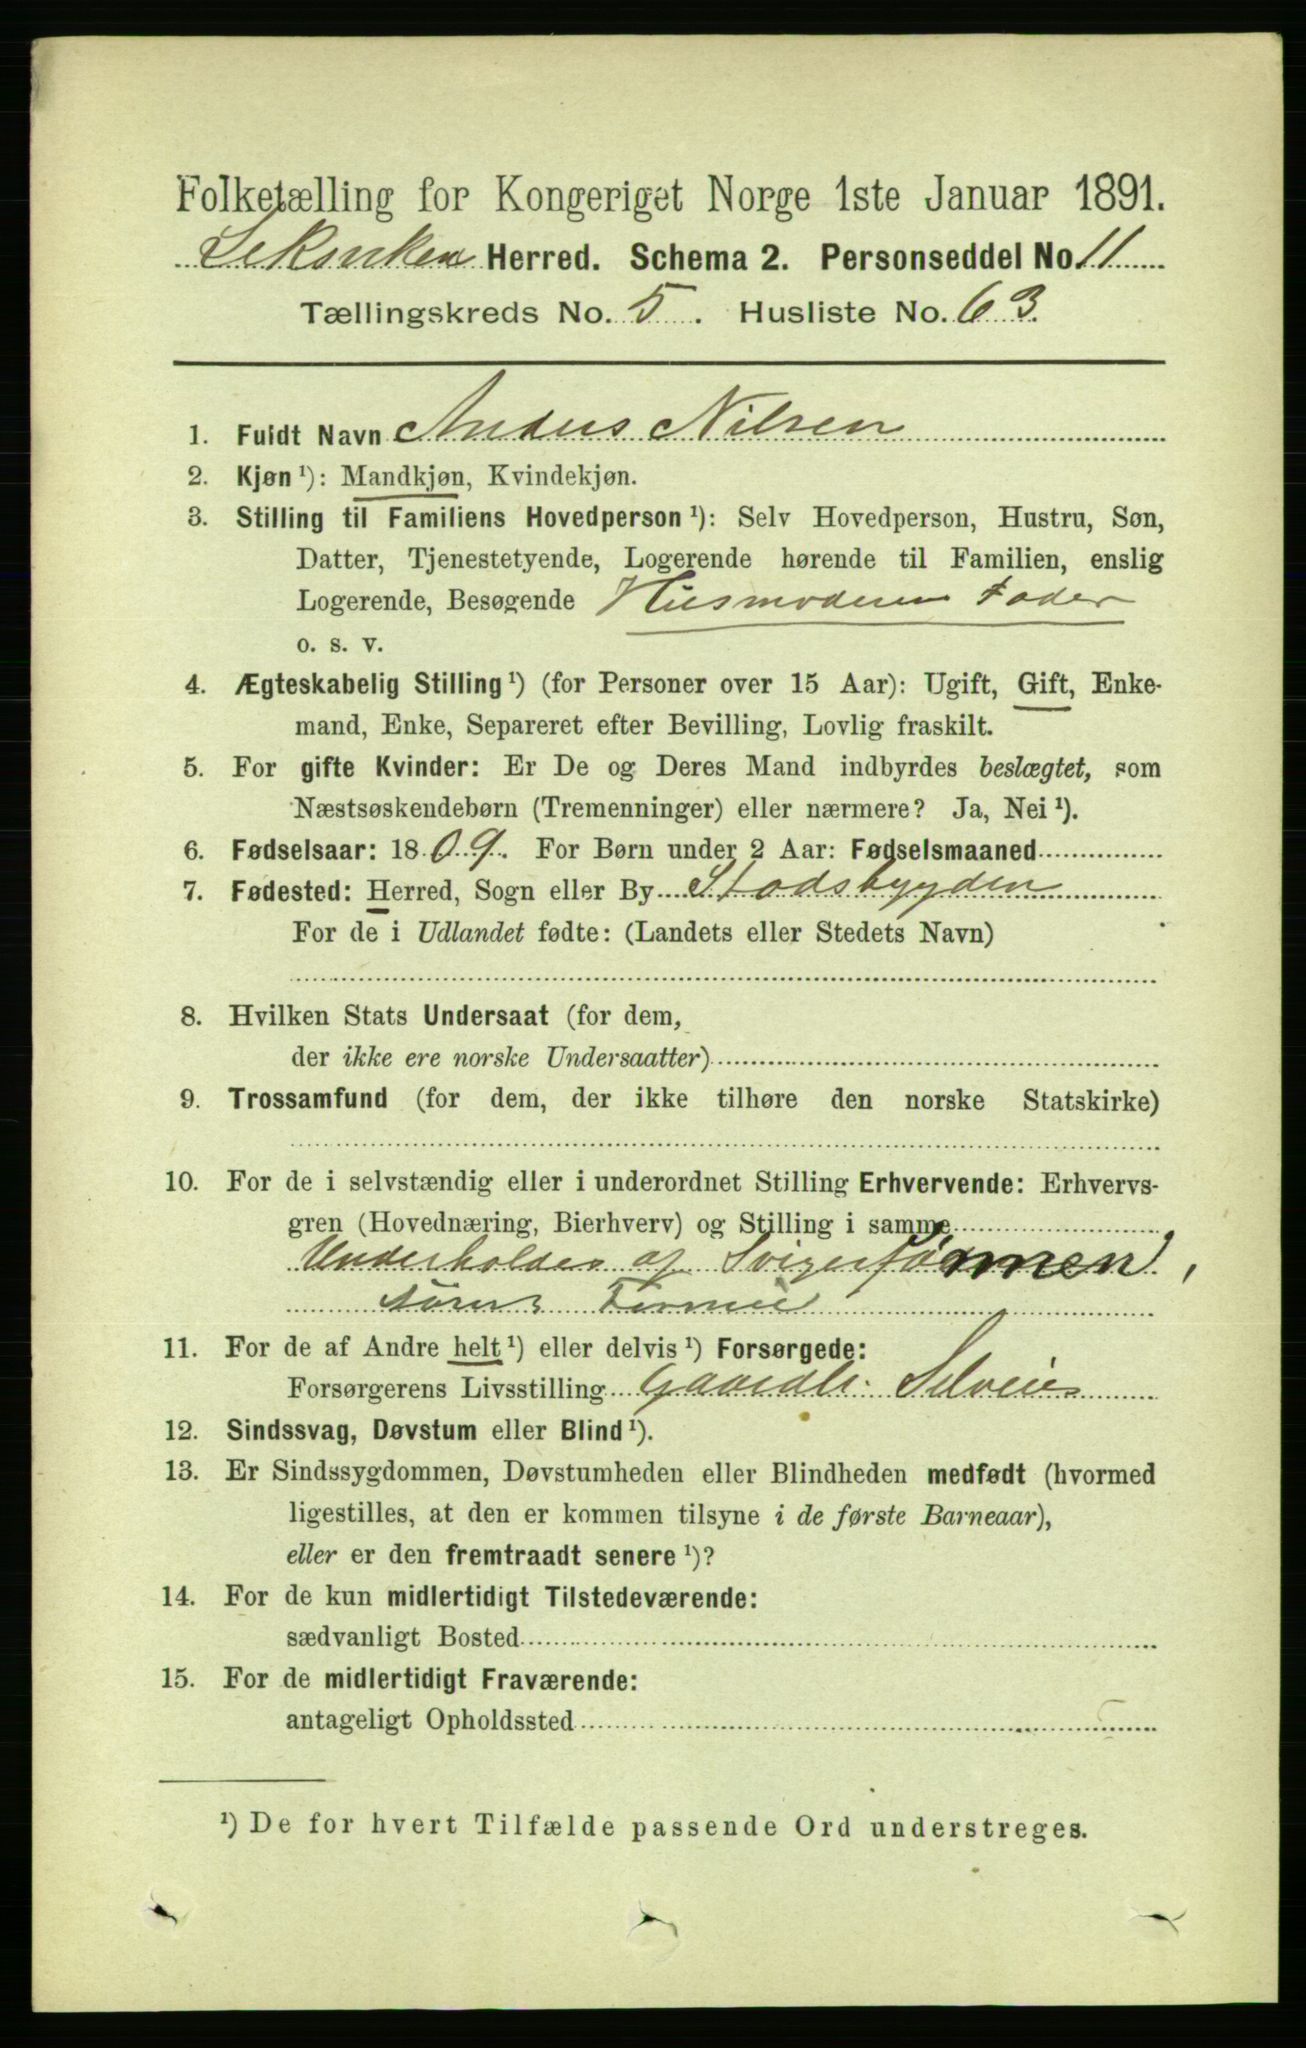 Folketælling for Kongeriget Norge 1ste Januar 1891.
Leksviken Herred. Schema 2. Personseddel No. 11
Tællingskreds No. 5. Husliste No. 63.
1. Fuldt Navn Anders Nilsen
2. Kjøn ¹): Mandkjøn, Kvindekjøn.
3. Stilling til Familiens Hovedperson ¹): Selv Hovedperson, Hustru, Søn,
Datter, Tjenestetyende, Logerende hørende til Familien, enslig
Logerende, Besøgende Husmoderens Fader
o. s. v.
4. Ægteskabelig Stilling ¹) (for Personer over 15 Aar): Ugift, Gift, Enke-
mand, Enke, Separeret efter Bevilling, Lovlig fraskilt.
5. For gifte Kvinder: Er De og Deres Mand indbyrdes beslægtet, som
Næstsøskendebørn (Tremenninger) eller nærmere? Ja, Nei ¹).
6. Fødselsaar: 1809. For Børn under 2 Aar: Fødselsmaaned
7. Fødested: Herred, Sogn eller By Stadsbygden
For de i Udlandet fødte: (Landets eller Stedets Navn)
8. Hvilken Stats Undersaat (for dem,
der ikke ere norske Undersaatter)
9. Trossamfund (for dem, der ikke tilhøre den norske Statskirke)
10. For de i selvstændig eller i underordnet Stilling Erhvervende: Erhvervs-
gren (Hovednæring, Bierhverv) og Stilling i samme
Underholdes af Svigersønnen,
11. For de af Andre helt ¹) eller delvis ¹) Forsørgede:
Forsørgerens Livsstilling Gaardb. Selveier
12. Sindssvag, Døvstum eller Blind ¹).
13. Er Sindssygdommen, Døvstumheden eller Blindheden medfødt (hvormed
ligestilles, at den er kommen tilsyne i de første Barneaar),
eller er den fremtraadt senere ¹)?
14. For de kun midlertidigt Tilstedeværende:
sædvanligt Bosted
15. For de midlertidigt Fraværende:
antageligt Opholdssted
¹) De for hvert Tilfælde passende Ord understreges.